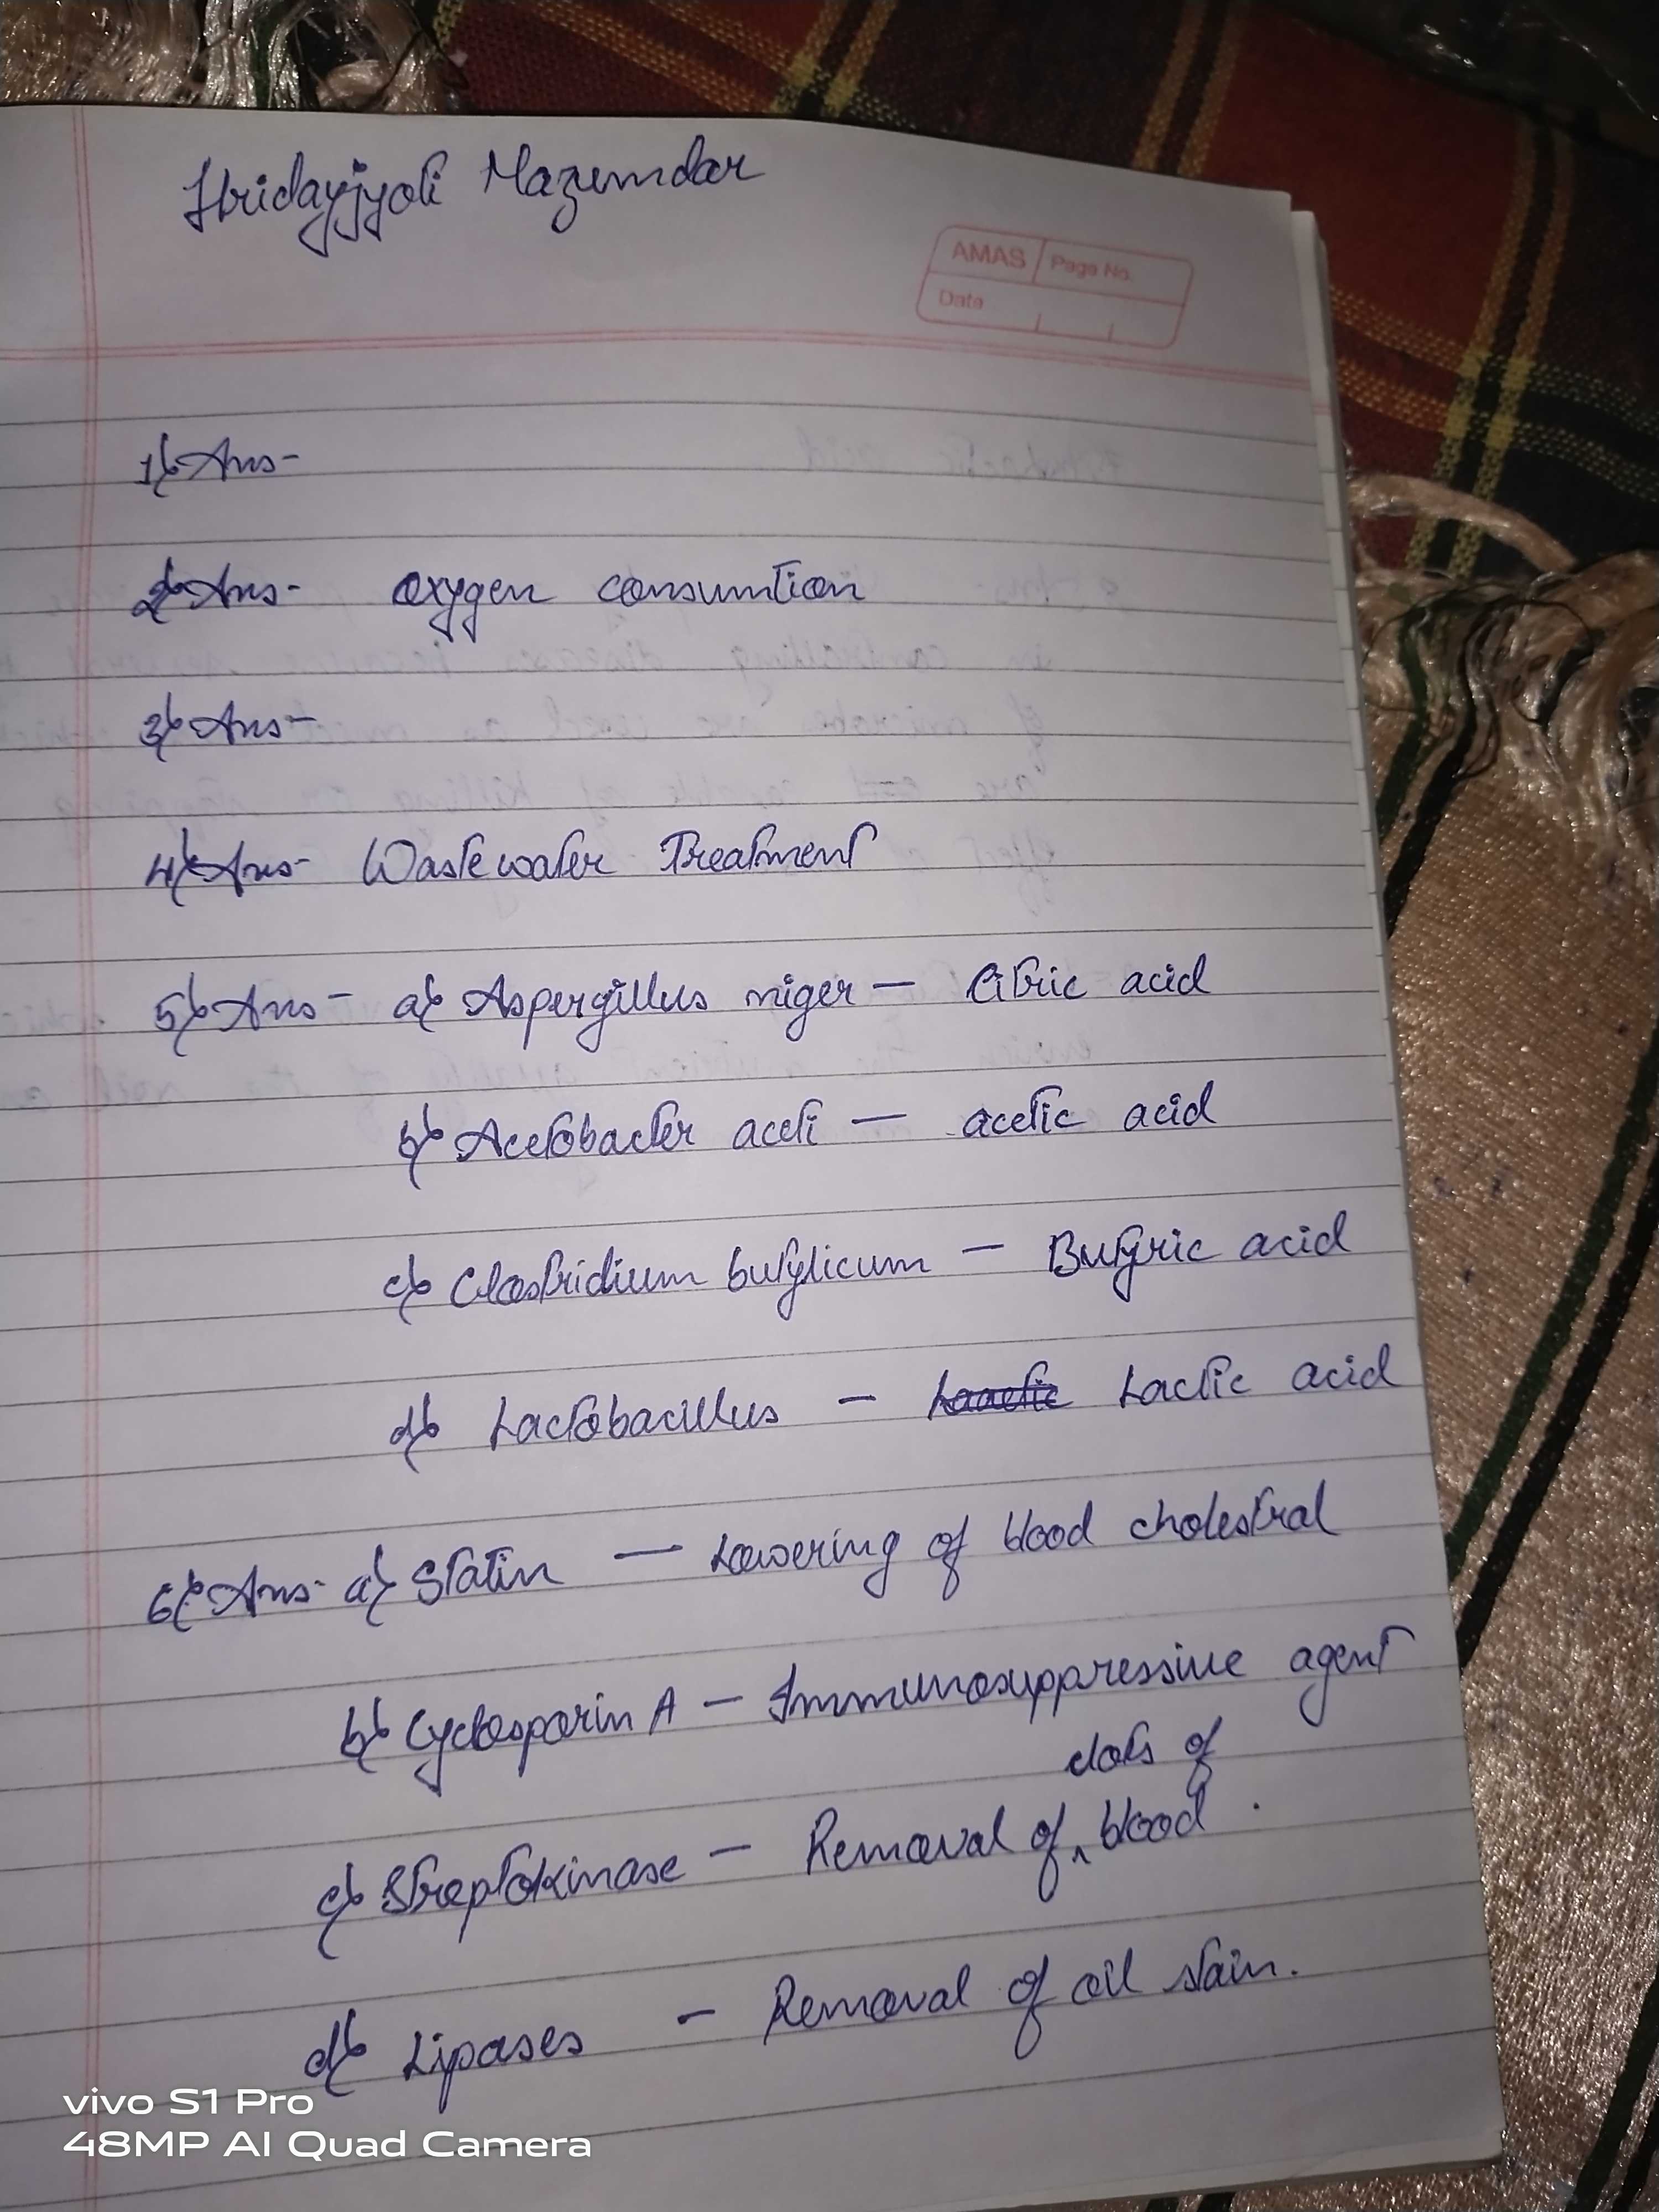 Hridayjyoti Mazumdar
AMAS Page No.
Date
1) Ans-
2) Ans- oxygen consumtion
3) Ans-
4) Ans- Waste water Treatment
5) Ans- a) Aspergillus niger — Citric acid
b) Acetobacter aceti — acetic acid
c) Clostridium butylicum — Butyric acid
d) Lactobacillus — Lactic acid
6) Ans- a) Statin — Lowering of blood cholestral
b) Cyclosporin A — Immunosuppressive agent
clots of
c) Streptokinase — Removal of ^ blood .
d) Lipases - Removal of oil stain.
vivo S1 Pro
48MP AI Quad Camera